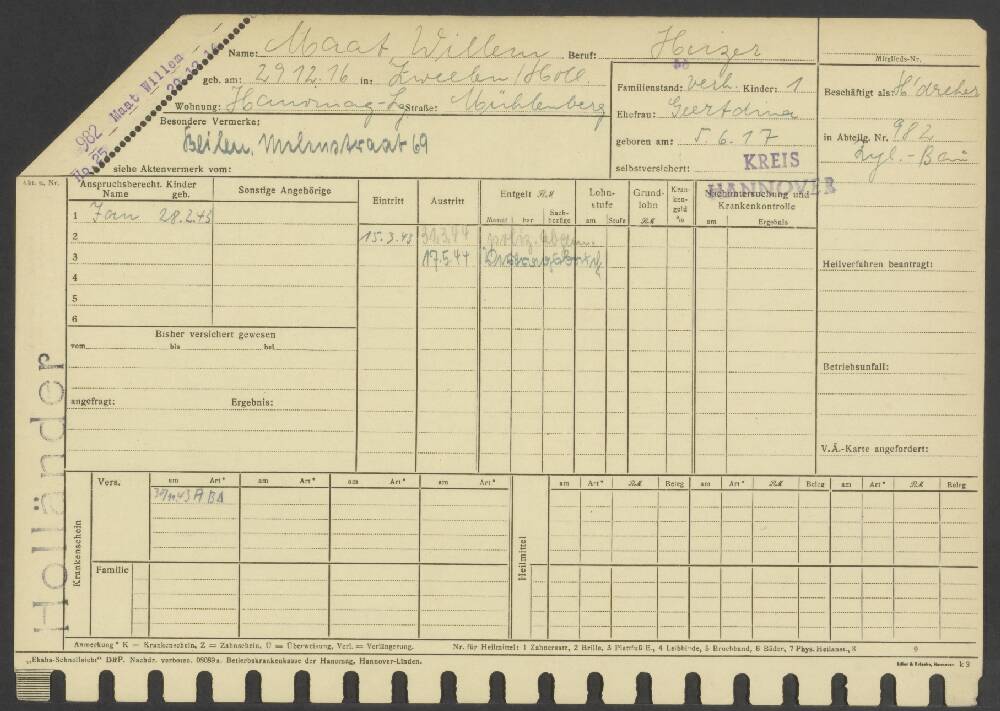 982 Maat Willem
25 29.12.16
Name: Maat, Willem Beruf: Heizer
geb. am: 29.12.16 in: Zweelen/Holl.
Wohnung: Hanomag-Lg Straße: Mühlenberg
Besondere Vermerke:
Beilen,
69
siehe Aktenvermerk vom:
Familienstand: verh. Kinder: 1
Ehefrau: Geertdina
geboren am: 5.6.17
selbstversichert:
KREIS
HANNOVER
Mitglieds-Nr.
Beschäftigt als: H'dreher
in Abteilg. Nr. 982
Zyl.-Bau
Akt. u. Nr.
Anspruchsberecht. Kinder
Name geb.
Sonstige Angehörige
Eintritt
Austritt
Entgelt RM
Monat her Sach-bezüge
Lohn-stufe
am Stufe
Grund-lohn
RM
Kran-ken-geld
%
Nachuntersuchung und Krankenkontrolle
am Ergebnis
1 Jan 28.2.43
2
15.3.43 31.3.44
3
17.5.44
4
5
6
Heilverfahren beantragt:
Bisher versichert gewesen
vom bis bei
Betriebsunfall:
angefragt: Ergebnis:
V.Ä.-Karte angefordert:
Holländer
Krankenschein
Vers.
am Art* am Art* am Art* am Art*
Familie
Heilmittel
am Art* RM Beleg am Art* RM Beleg am Art* RM Beleg
Anmerkung * K = Krankenschein, Z = Zahnschein, Ü = Überweisung, Verl. = Verlängerung.
Nr. für Heilmittel: 1 Zahnersatz, 2 Brille, 3 Plattfuß E., 4 Leibbinde, 5 Bruchband, 6 Bäder, 7 Phys. Heilanw., 8 9
„Ekaha-Schnellsicht" DRP. Nachdr. verboten. 08089a. Betriebskrankenkasse der Hanomag, Hannover-Linden.
k 9